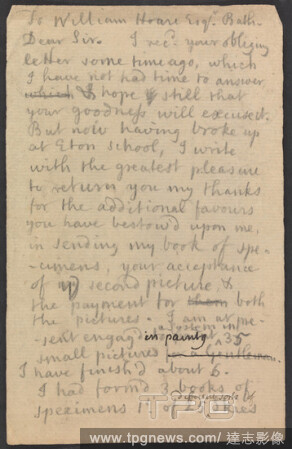 To William Hoare Esqr. Bath.
Dear Sir. I recd. your obliging
letter some time ago, which
I have not had time to answer
which, I hope still that
your goodness will excuse it.
But now having broke up
at Eton School, I write
with the greatest pleasure
to return you my thanks
for the additional favours
you have bestow'd upon me,
in sending my book of spe-
-cimens, your acceptance
of my second picture, &
the payment for them both
the pictures. I am at pre-
-sent engag'd in painting 35
small pictures for a Gentleman.
I have finish'd about 6.
I had form'd 3 books of
specimens 1st of 29
TPG
www.tpgnews.com / 達志影像